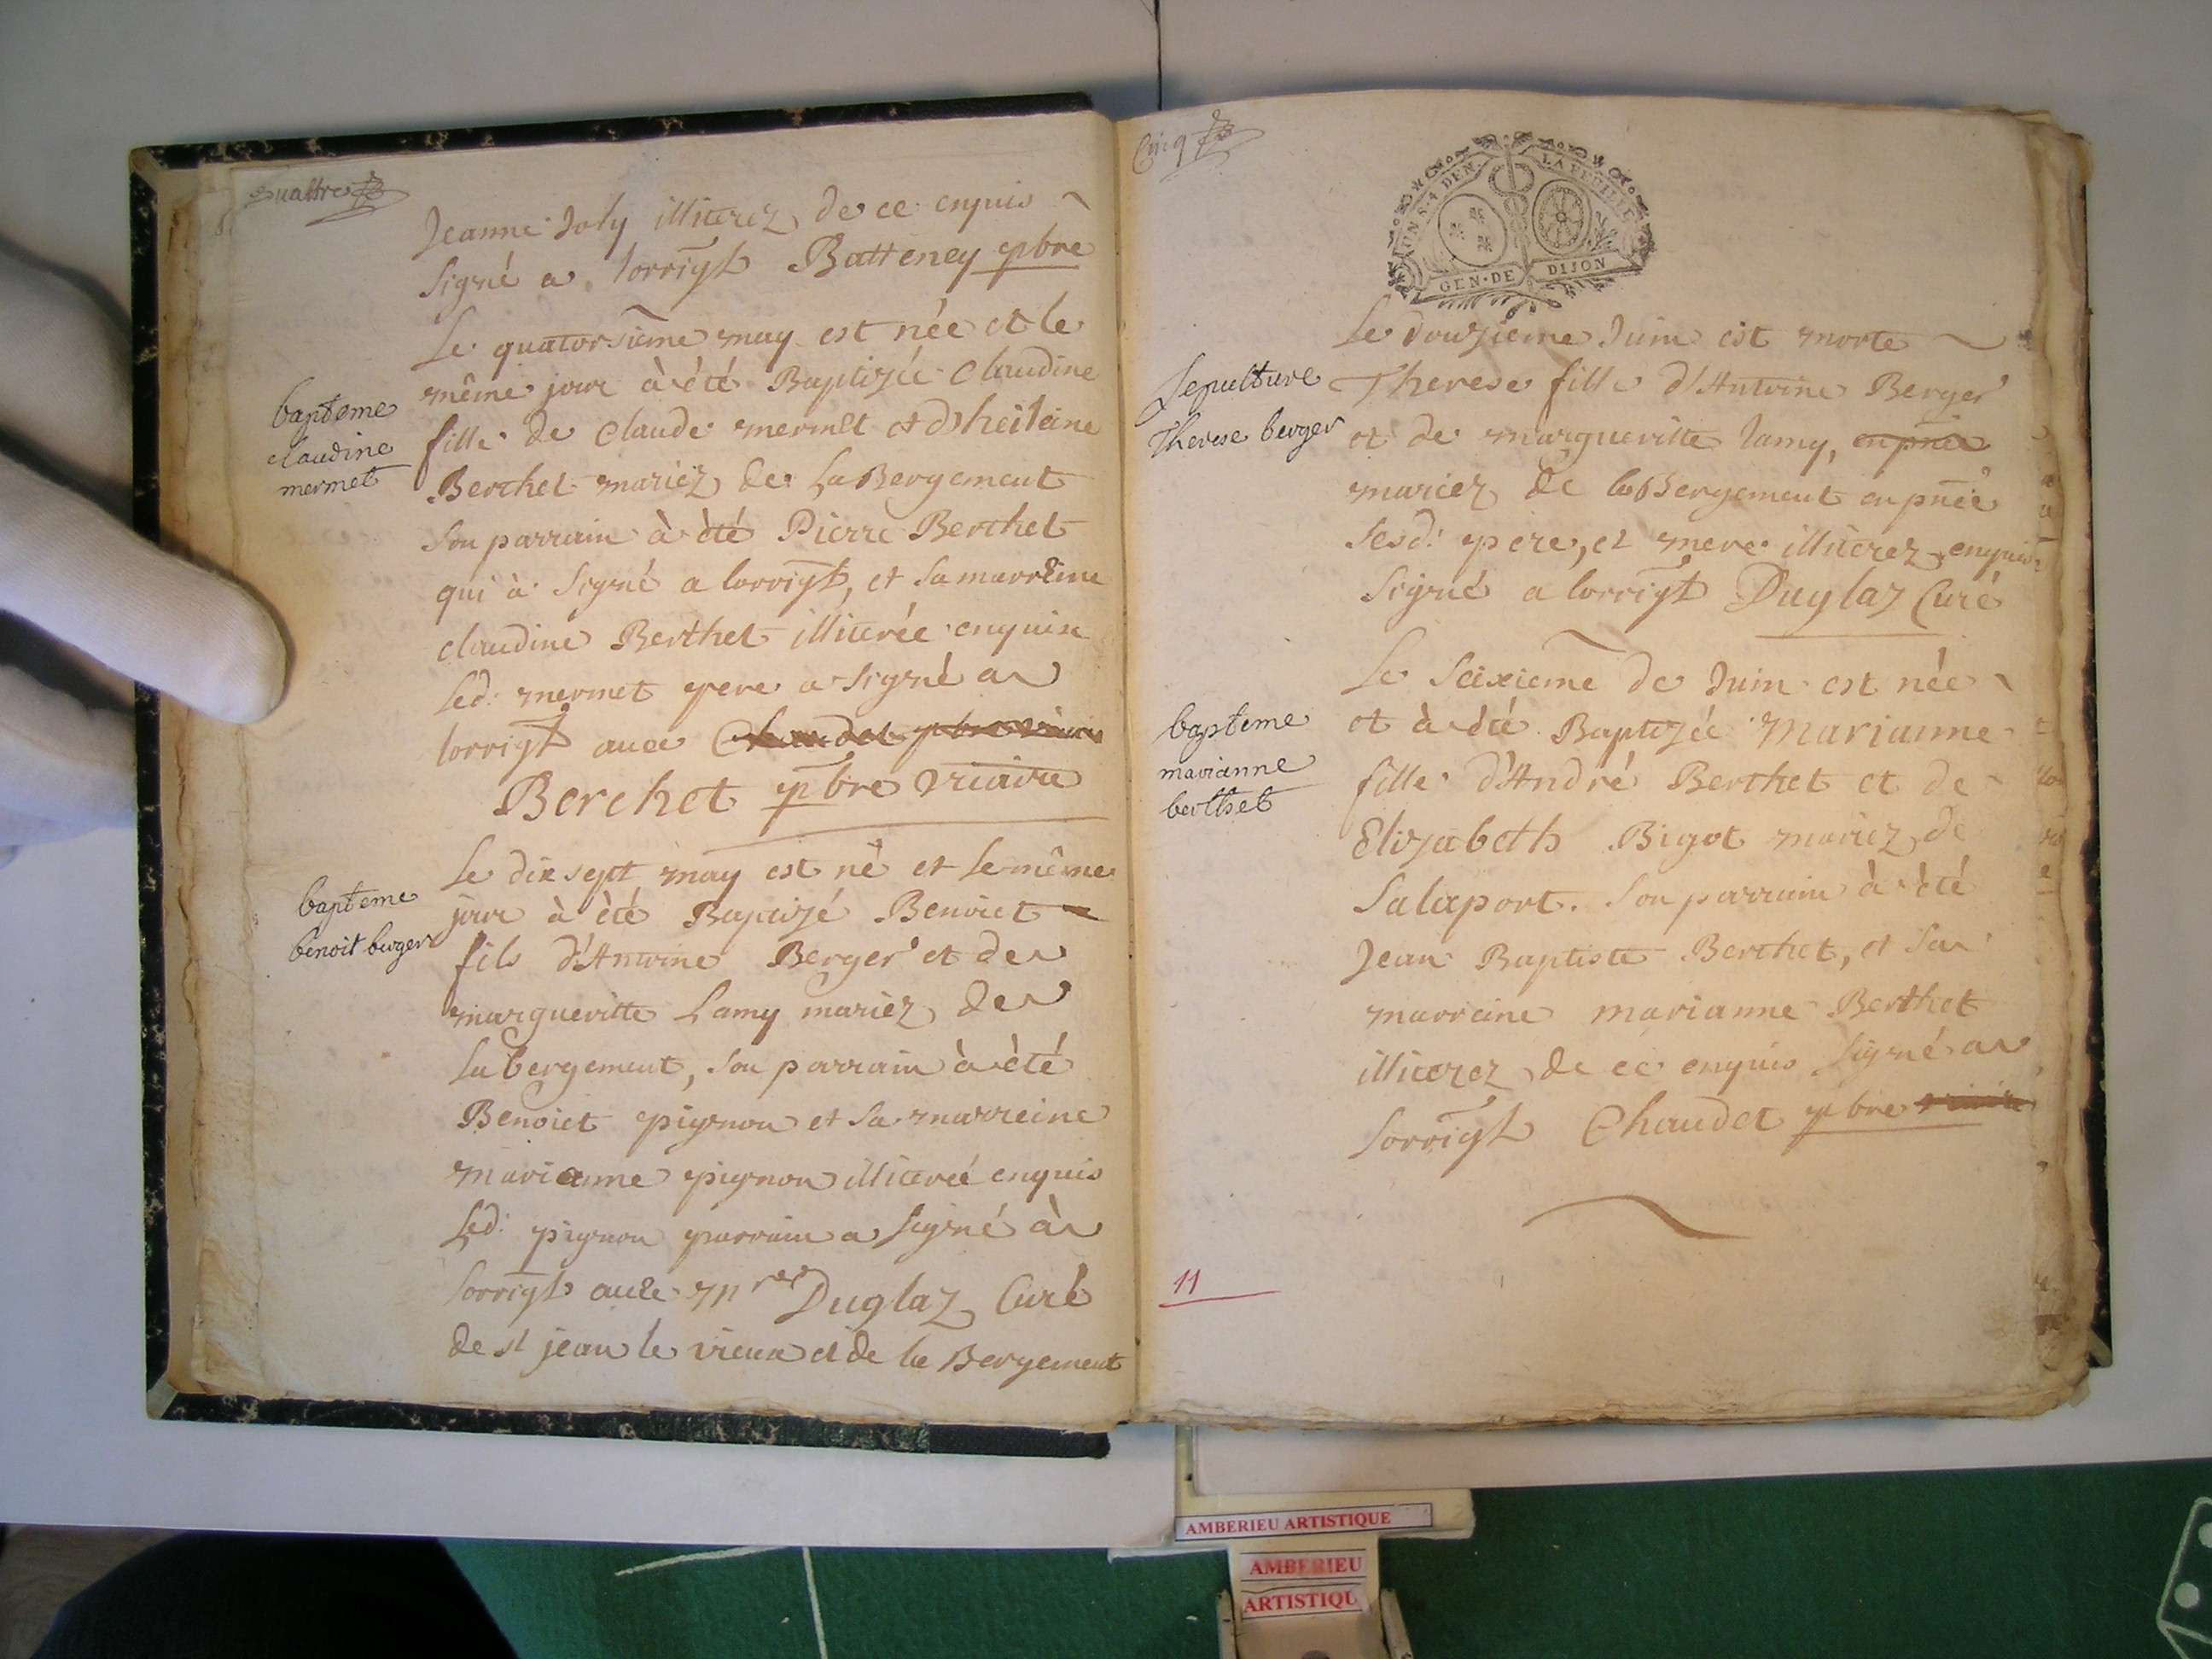 quattre
Jeanne Joly illiterez de ce enquis
signé a lorrigt Batteney pbre
Le quatorsiême may est née et le
même jour à été Baptizée Claudine
baptême
claudine
mermet
fille de Claude mermet et d'heileine
Berthet mariez de La Bergement
son parrain à été Pierre Berthet
qui à signé a lorrigt, et sa marreine
claudine Berthet illiterée enquise
Led: mermet pere a signé a
lorrigt auec Chaudet pbre
Berchet pbre vicaire
Le dix sept may est né et le même
baptême
benoit berger
jour à été Baptizé Benoict
fils d'Antoine Berger et de
margueritte Lamy mariez de
Labergement, son parrain à été
Benoict pignon et sa marreine
marianne pignon illiterée enquis
Led: pignon parrain a signé à
lorrigt auec mre Duglaz Curé
de st jean le vieux et de la Bergement
Cinq
UN S. 4 DEN. LA FEUILLE
GEN. DE DIJON
Le douzieme Juin est morte
sepulture
Therese berger
Therese fille d'Antoine Berger
et de margueritte lamy, enpnée
mariez de la Bergement en pnée
sesd: pere, et mere illiterez enquis
signé a lorrigt Duglaz Curé
Le seixieme de Juin est née
baptême
marianne
berthet
et à été Baptizée Marianne
fille d'André Berthet et de
Elizabeth Bigot mariez de
Salaport. son parrain à été
Jean Baptiste Berthet, et sa
marreine marianne Berthet
illiterez de ce enquis signé a
lorrigt Chaudet pbre
11
AMBERIEU ARTISTIQUE
AMBERIEU
ARTISTIQU